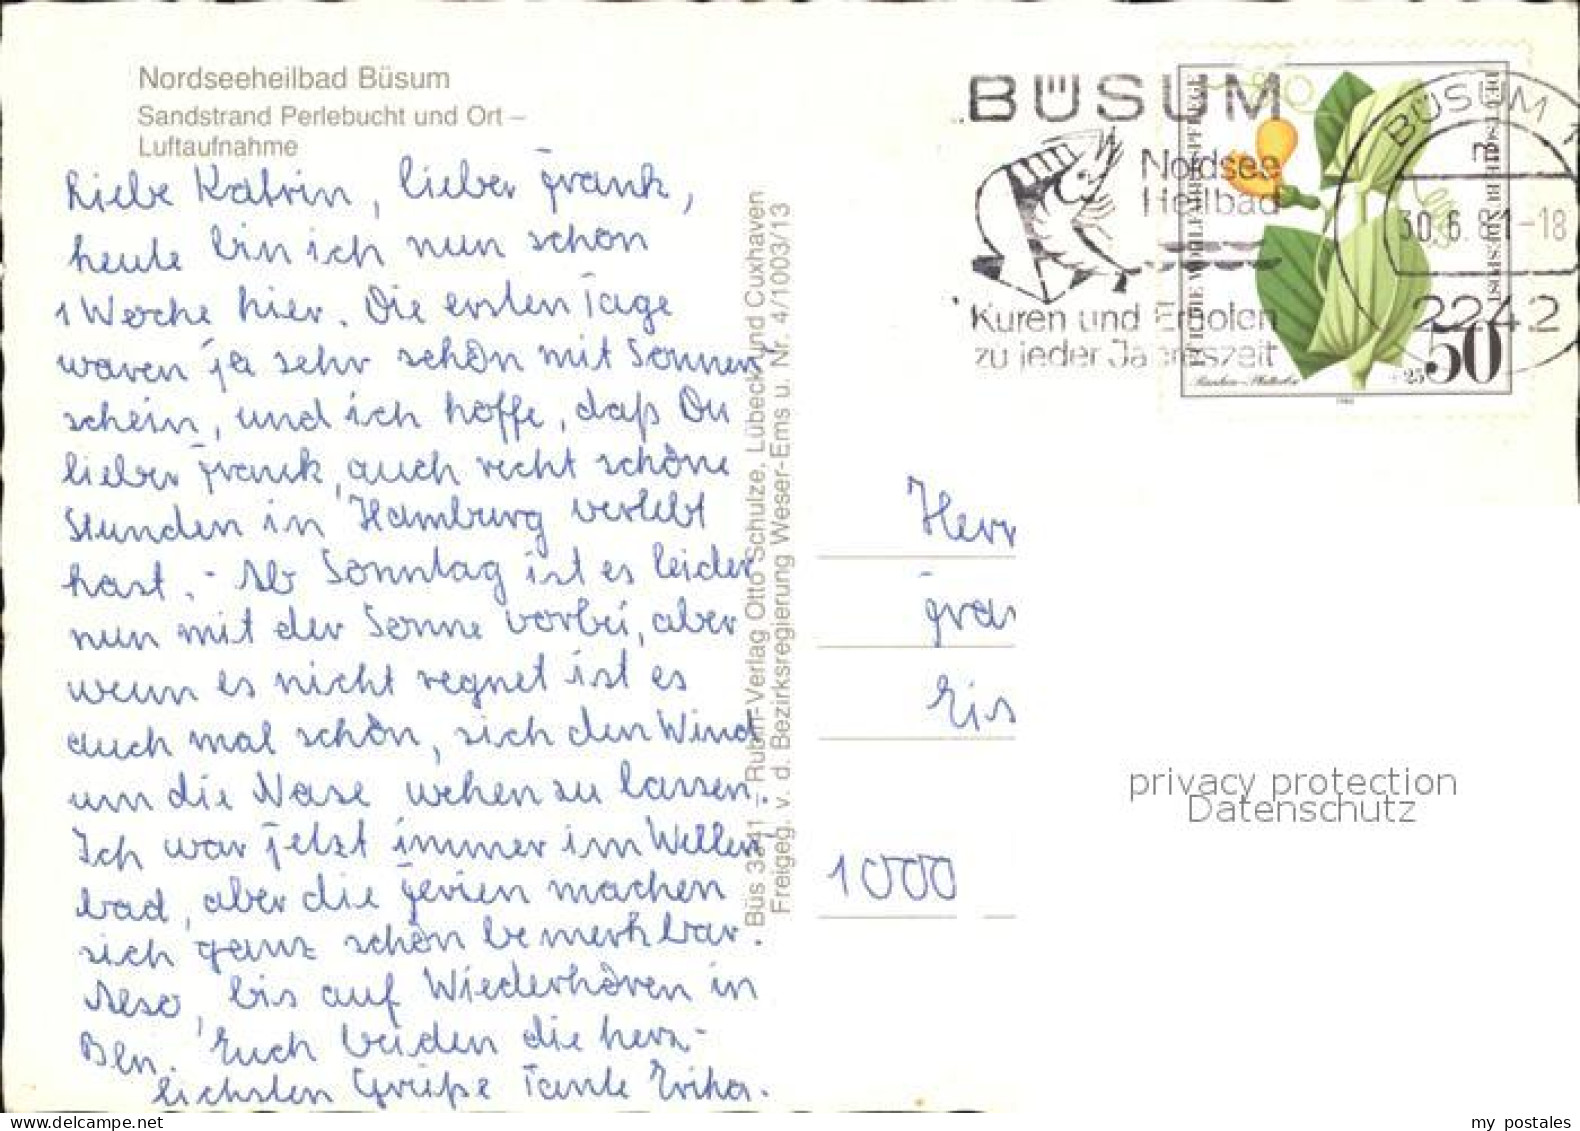 Nordseeheilbad Büsum
Sandstrand Perlebucht und Ort –
Luftaufnahme
Liebe Katrin, lieber Frank,
heute bin ich nun schon
1 Woche hier. Die ersten Tage
waren ja sehr schön mit Sonnen
schein, und ich hoffe, daß Du
lieber Frank, auch recht schöne
Stunden in Hamburg verlebt
hast. - Ab Sonntag ist es leider
nun mit der Sonne vorbei, aber
wenn es nicht regnet ist es
auch mal schön, sich den Wind
um die Nase wehen zu lassen.
Ich war jetzt immer im Wellen
bad, aber die Ferien machen
sich ganz schön bemerkbar.
Also, bis auf Wiederhören in
Bln. Euch beiden die herz-
lichsten Grüße Tante Erika.
Büs 3341 – Rubin-Verlag Otto Schulze, Lübeck und Cuxhaven
Freigeg. v. d. Bezirksregierung Weser-Ems u. Nr. 4/1003/13
BÜSUM
Nordsee
Heilbad
Kuren und Erholen
zu jeder Jahreszeit
FÜR DIE WOHLFAHRTSPFLEGE
DEUTSCHE BUNDESPOST
+25 50
1980
BÜSUM 1
m
30.6.81-18
2242
Herr
Fra
Eis
1000
privacy protection
Datenschutz
my postales